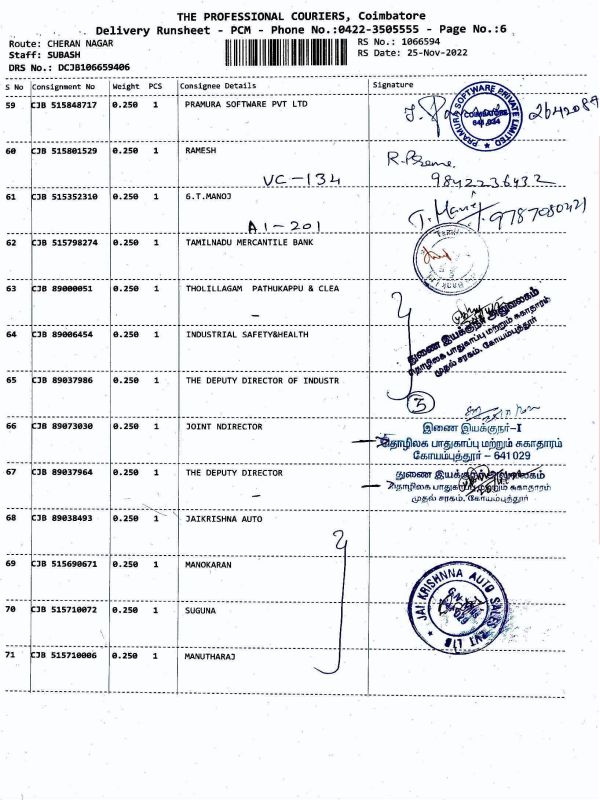 THE PROFESSIONAL COURIERS, Coimbatore
Delivery Runsheet - PCM - Phone No.:0422-3505555 - Page No.:6
Route: CHERAN NAGAR
Staff: SUBASH
DRS No.: DCJB106659406
RS No.: 1066594
RS Date: 25-Nov-2022
S No Consignment No Weight PCS Consignee Details Signature
59 CJB 515848717 0.250 1 PRAMURA SOFTWARE PVT LTD
PRAMURA SOFTWARE PRIVATE LIMITED
COIMBATORE
60 CJB 515801529 0.250 1 RAMESH
VC-134
9842236432
61 CJB 515352310 0.250 1 G.T.MANOJ
A1-201
9787080421
62 CJB 515798274 0.250 1 TAMILNADU MERCANTILE BANK
63 CJB 89000051 0.250 1 THOLILLAGAM PATHUKAPPU & CLEA
துணை இயக்குநர் அலுவலகம்
தொழிலக பாதுகாப்பு மற்றும் சுகாதாரம்
முதல் சரகம், கோயம்புத்தூர்
64 CJB 89006454 0.250 1 INDUSTRIAL SAFETY&HEALTH
65 CJB 89037986 0.250 1 THE DEPUTY DIRECTOR OF INDUSTR
5
66 CJB 89073030 0.250 1 JOINT NDIRECTOR
இணை இயக்குநர்-I
தொழிலக பாதுகாப்பு மற்றும் சுகாதாரம்
கோயம்புத்தூர் – 641029
67 CJB 89037964 0.250 1 THE DEPUTY DIRECTOR
துணை இயக்குநர் அலுவலகம்
தொழிலக பாதுகாப்பு மற்றும் சுகாதாரம்
முதல் சரகம், கோயம்புத்தூர்
68 CJB 89038493 0.250 1 JAIKRISHNA AUTO
69 CJB 515690671 0.250 1 MANOKARAN
JAI KRISHNNA AUTO SALES
70 CJB 515710072 0.250 1 SUGUNA
71 CJB 515710006 0.250 1 MANUTHARAJ